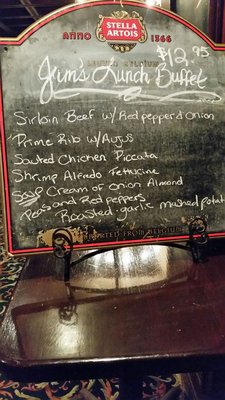 STELLA
ARTOIS
ANNO 1366
$12.95
Jim's Lunch Buffet
Sirloin Beef w/Red pepper & onion
Prime Rib w/Aujus
Sauted Chicken Piccata
Shrimp Alfredo Fettucine
Soup Cream of onion Almond
Peas and Red peppers
Roasted garlic mashed potat
IMPORTED FROM BELGIUM